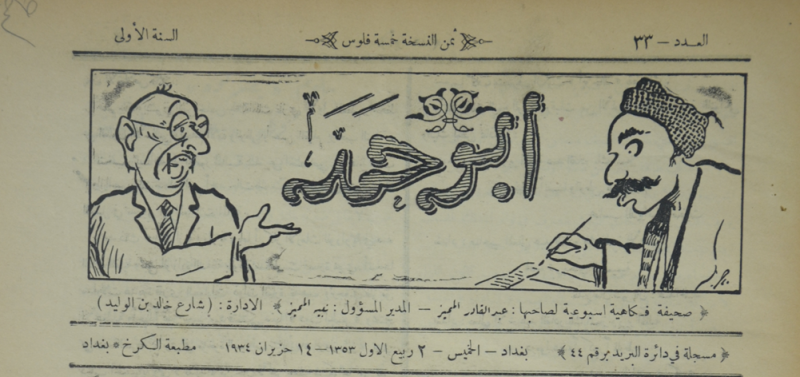 العدد – ٣٣ ثمن النسخة خمسة فلوس السنة الأولى
أبو حمد
﴿ صحيفة فكاهية اسبوعية لصاحبها : عبدالقادر المميز – المدير المسؤول : نهير المميز ﴾ الادارة : ( شارع خالد بن الوليد )
﴿ مسجلة في دائرة البريد برقم ٤٤ ﴾ بغداد – الخميس – ٢ ربيع الاول ١٣٥٣ – ١٤ حزيران ١٩٣٤ مطبعة الكرخ * بغداد